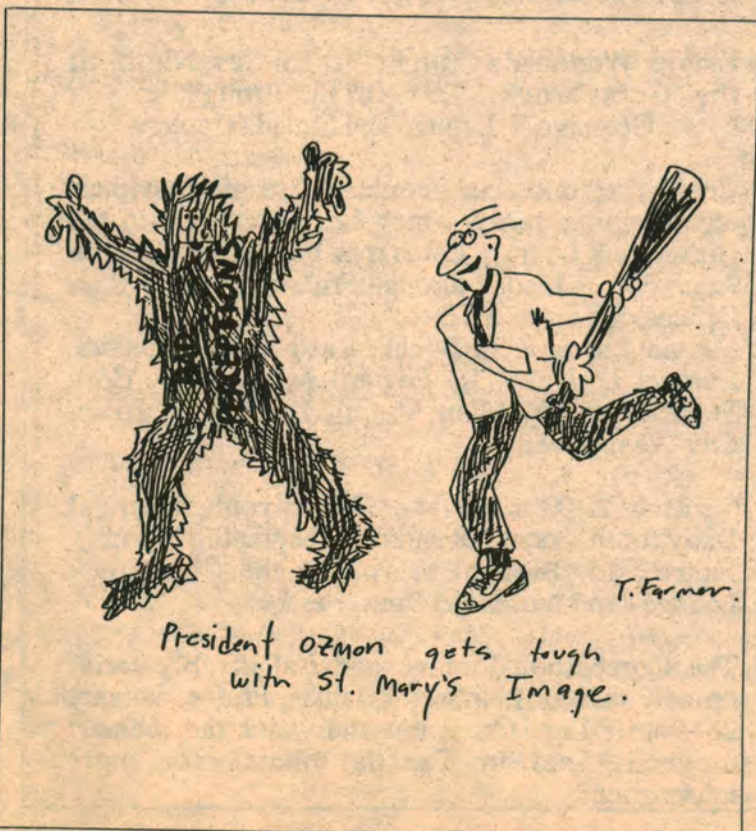 BAD
PERCEPTIONS
T. Farmer.
President Ozmon gets tough
with St. Mary's Image.